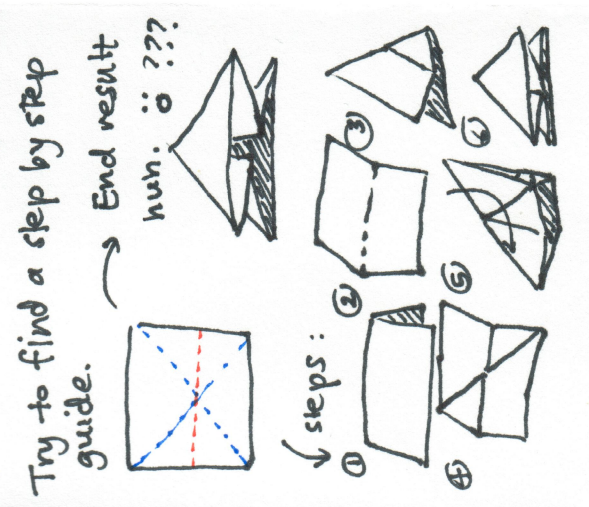 Try to find a step by step
guide.
End result
hun. ???
steps:
①
②
③
④
⑤
⑥